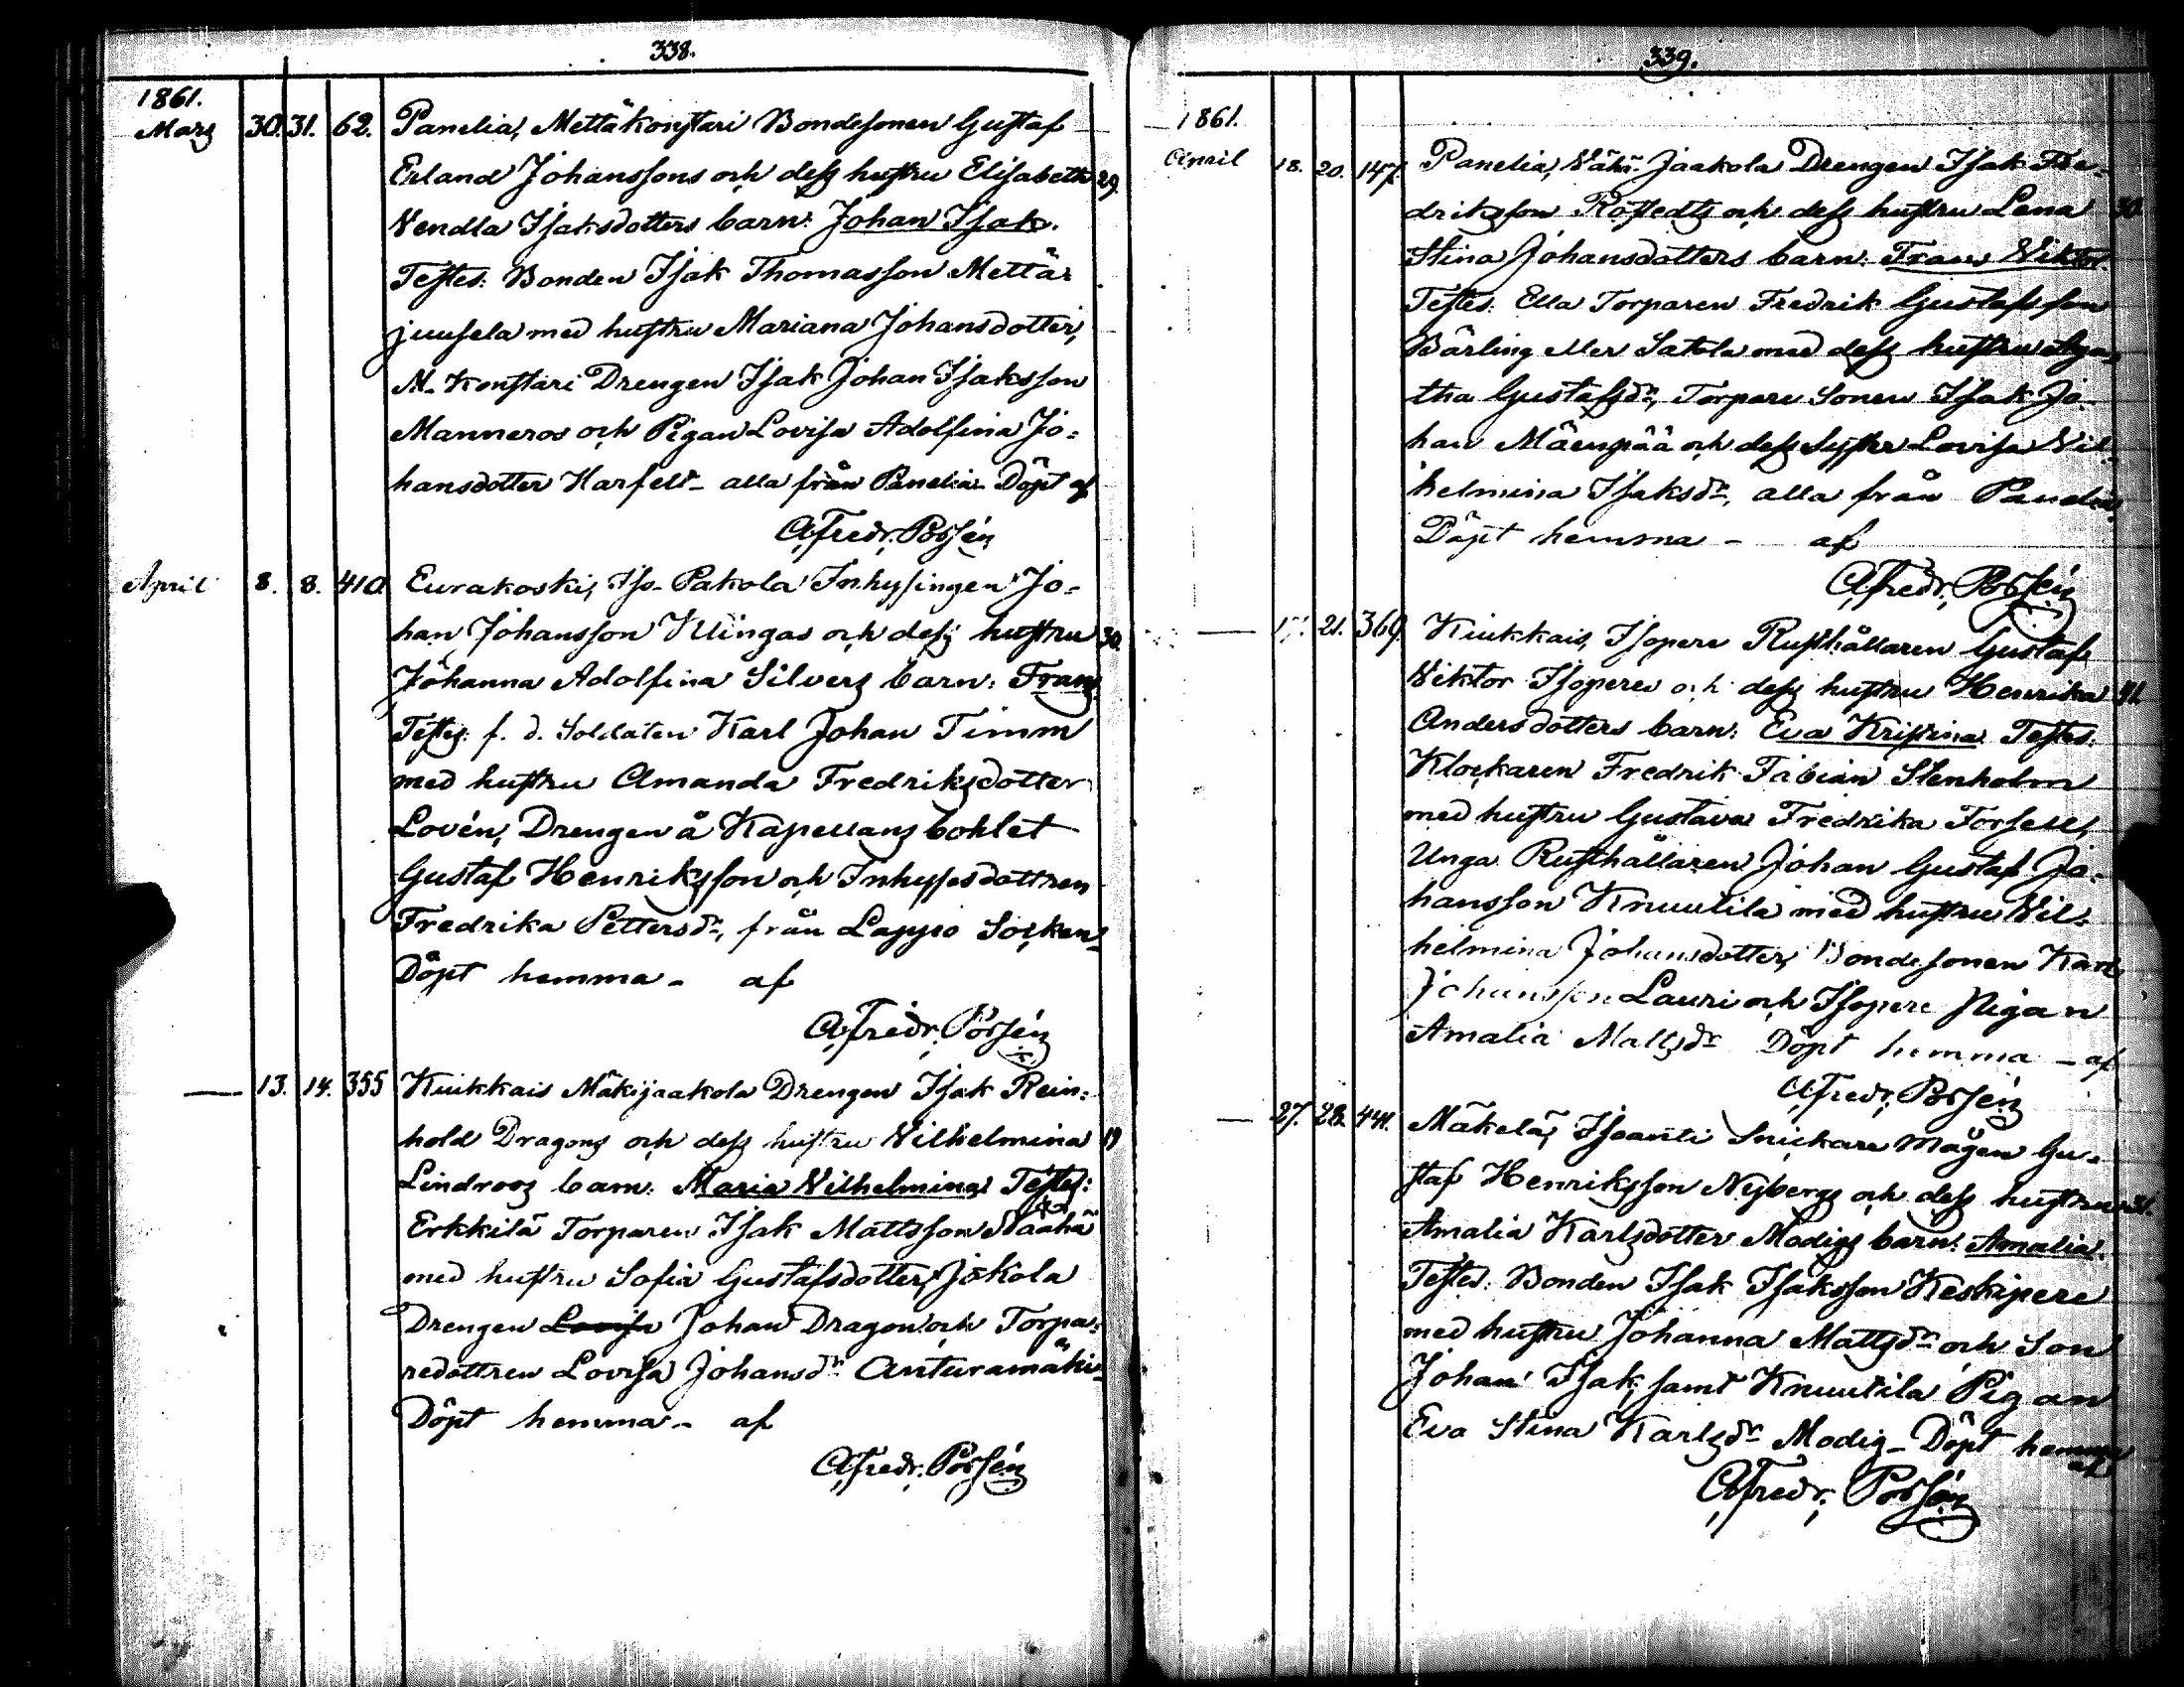 338.
1861.
Mars 30. 31. 62. Panelia, Mettäkonstari Bondesonen Gustaf
Erland Johanssons och dess hustru Elisabeth 29.
Vendla Isaksdotters barn: Johan Isak.
Testes: Bonden Isak Thomasson Mettä-
juusela med hustru Mariana Johansdotter,
M. Konstari Drengen Isak Johan Isaksson
Manneros och Pigan Lovisa Adolfina Jo-
hansdotter Harfelt - alla från Panelia - Döpt af
A. Fredr. Porsén
April 8. 8. 410 Eurakoski, Iso-Pakola Inhysingen Jo-
han Johansson Klingas och dess hustru 30.
Johanna Adolfina Silvers barn: Frans.
Testes: f. d. Soldaten Karl Johan Timm
med hustru Amanda Fredriksdotter
Lovén, Drengen å Kapellans bohlet
Gustaf Henriksson och Inhysesdottren
Fredrika Pettersdr, från Lappo Socken
Döpt hemma - af
A. Fredr. Porsén
— 13. 14. 355 Kiukkais Mäkijaakola Drengen Isak Rein-
hold Dragons och dess hustru Vilhelmina 19
Lindroos barn: Maria Vilhelmina. Testes:
Erkkilä Torparen Isak Mattsson Naaha
med hustru Sofia Gustafsdotter, Jokola
Drengen Lovisa Johan Dragon och Torpa-
redottren Lovisa Johansdr Anturamäki
Döpt hemma - af
A. Fredr. Porsén
339.
1861.
April 18. 20. 147. Panelia, Vähä-Jaakola Drengen Isak Fre-
driksson Rostedts och dess hustru Lena 30.
Stina Johansdotters barn: Frans Viktor.
Testes: Ella Torparen Fredrik Gustafsson
Bärling eller Satola med dess hustru Aga-
tha Gustafsdr, Torpare Sonen Isak Jo-
han Mäenpää och dess Syster Lovisa Vil-
helmina Isaksdr, alla från Panelia.
Döpt hemma - af
A. Fredr. Porsén
— 17. 21. 369. Kiukkais, Isopere Rusthållaren Gustaf
Viktor Isoperes och dess hustru Henrika 31.
Andersdotters barn: Eva Kristina. Testes:
Klockaren Fredrik Fabian Stenholm
med hustru Gustava Fredrika Forsell,
Unga Rusthållaren Johan Gustaf Jo-
hansson Knuutila med hustru Vil-
helmina Johansdotter, Bondesonen Karl
Johansson Lauri och Isopere Pigan
Amalia Mattsdr Döpt hemma - af
A. Fredr. Porsén
— 27. 28. 441. Mäkelä, Isoanti Snickare Mågen Gu-
staf Henriksson Nybergs och dess hustru 31.
Amalia Karlsdotter Modigs barn: Amalia.
Testes: Bonden Isak Isaksson Keskipere
med hustru Johanna Mattsdr och Son
Johan Isak, samt Knuutila Pigan
Eva Stina Karlsdr Modig - Döpt hemma
af
A. Fredr. Porsén